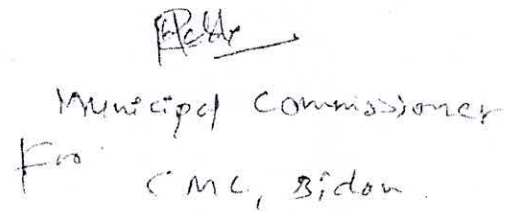 Municipal Commissioner
For
CMC, Bidar.